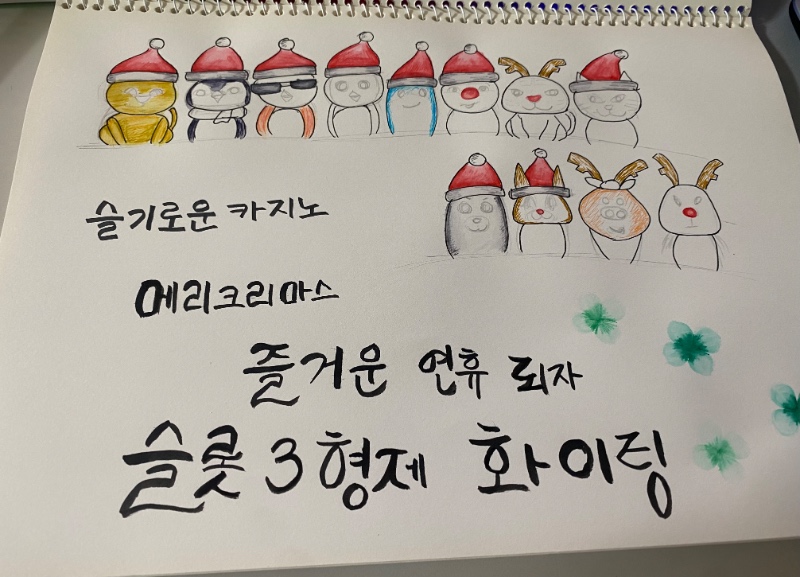 슬기로운 카지노
메리크리마스
즐거운 연휴 되자
슬롯 3형제 화이팅